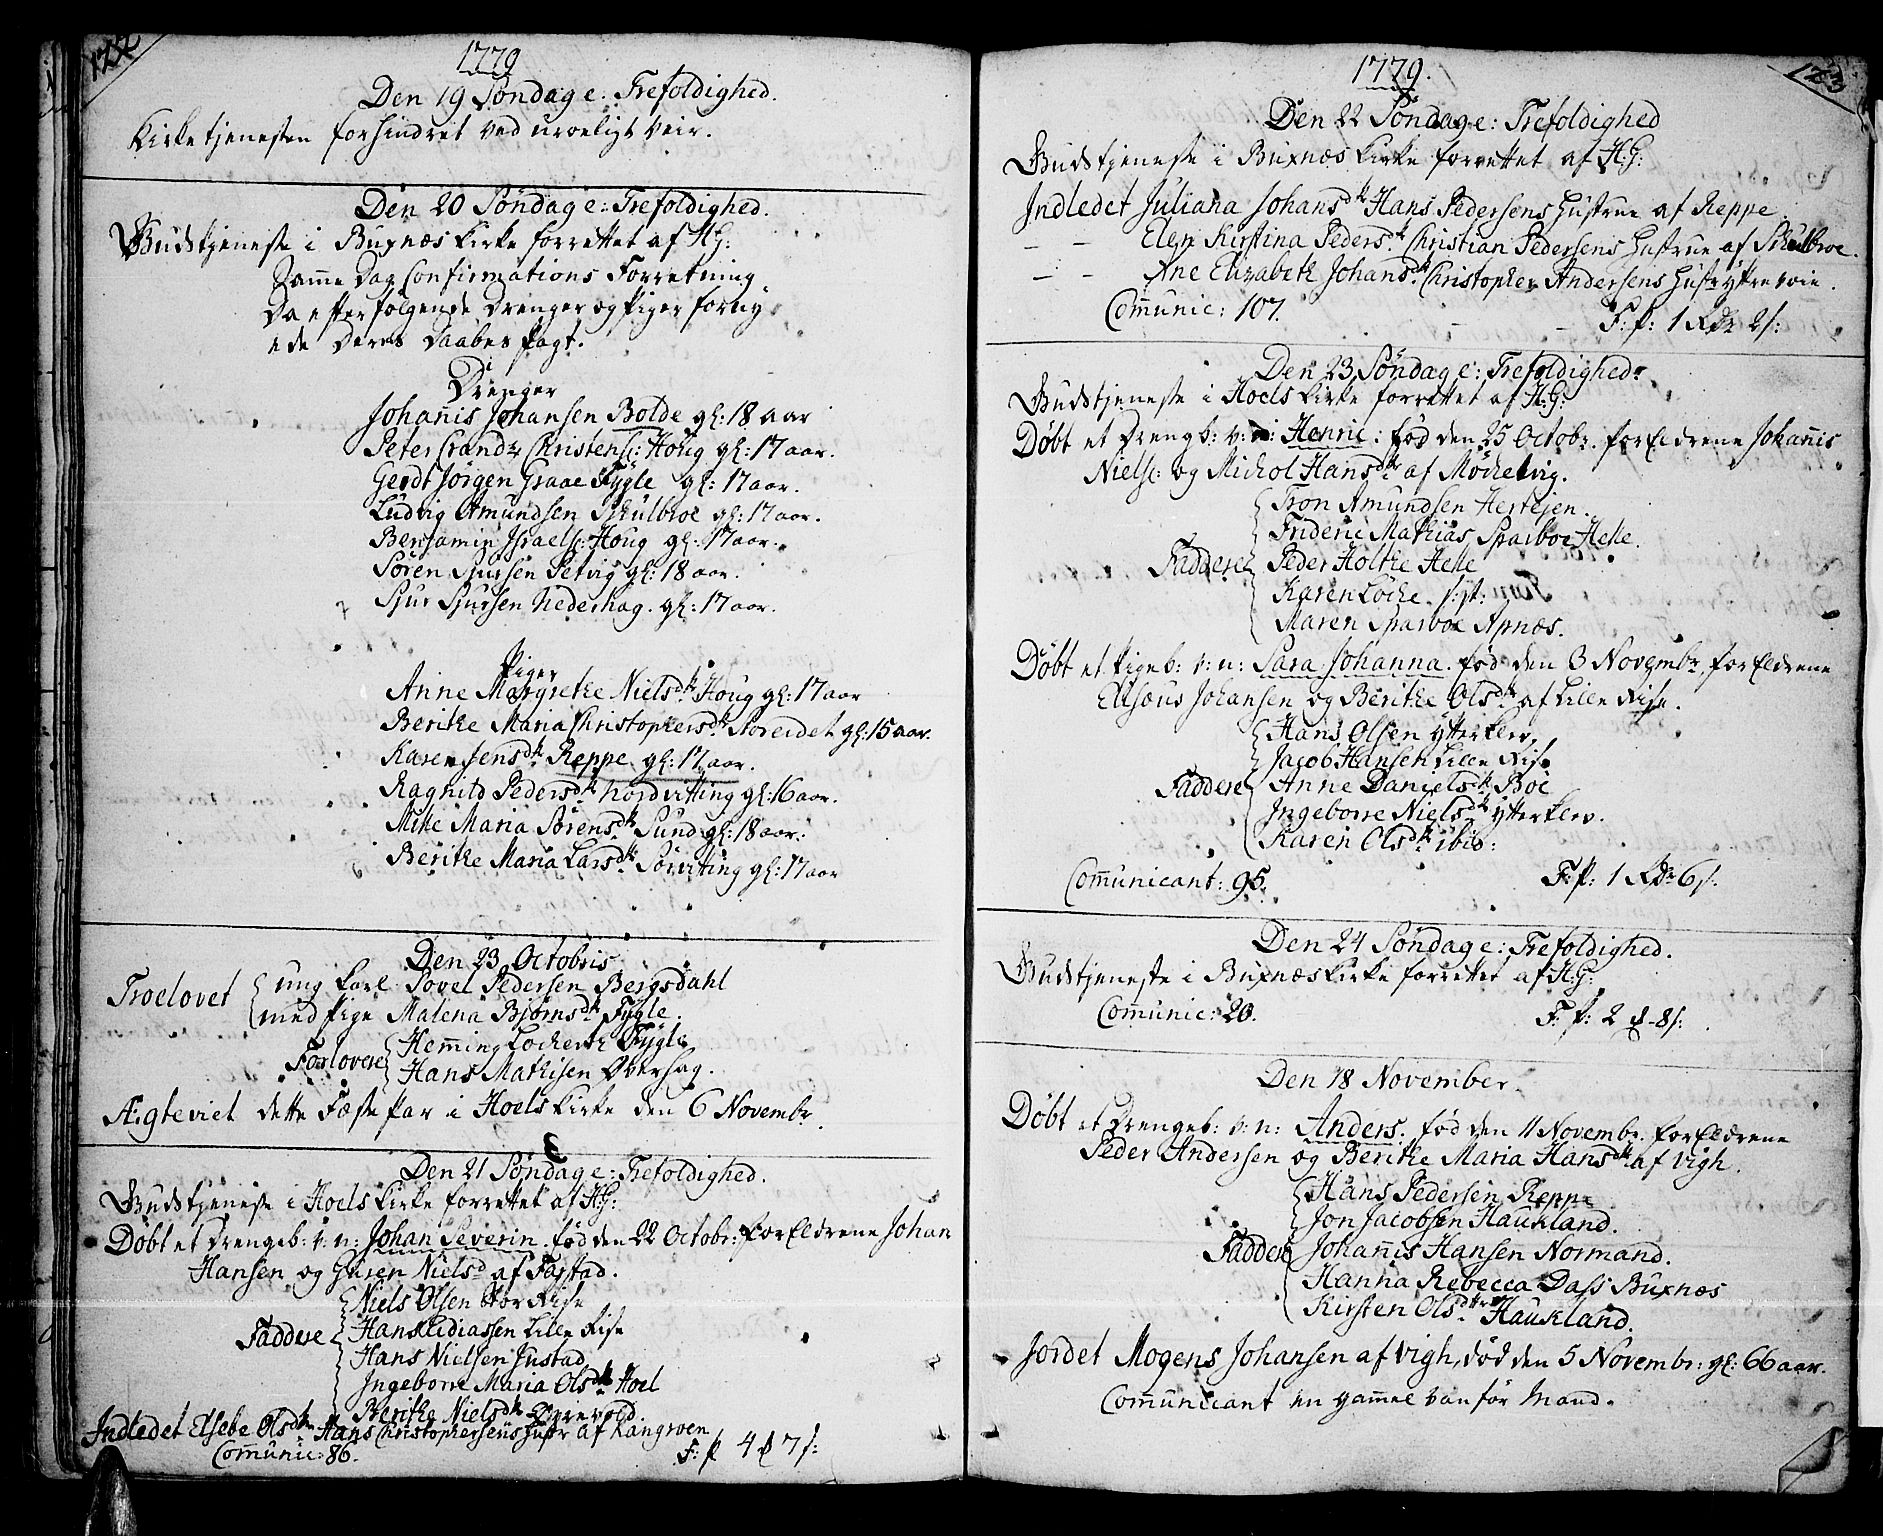 1779
Den 19 Søndag e: Trefoldighed.
Kirketjenesten forhindret ved uroeligt Veir.
Den 20 Søndag e: Trefoldighed.
Gudstjeneste i Buxnæs Kirke forrettet af HG:
Samme Dag Confirmations Forretning
Da efterfølgende Drenger og Piger forny
ede Deres Daabes Pagt.
Drenger
Johannis Johansen Bolde gl: 18 aar
Peter Christens: Houg gl: 17 aar.
Gerdt Jørgen Graae Fygle gl: 17 aar.
Ludvig Amundsen Skulbroe gl: 17 aar.
Benjamin Israels: Houg gl: 17 aar.
Søren Sjursen Petvig gl: 18 aar.
Sjur Sjursen Nederhag. gl: 17 aar.
Piger
Anne Margrethe Nielsdtr Houg gl: 17 aar
Berithe Maria Christophersdtr Storeidet gl: 15 aar.
Karen Jensdtr Reppe gl: 17 aar.
Ragnild Pedersdtr Nordvitting gl: 16 aar.
Mille Maria Sørensdtr Sund gl: 18 aar.
Berithe Maria Larsdtr Sørvitting gl: 17 aar
Den 23 Octobris
Troelovet ung Karl Povel Pedersen Bergsdahl
med Pige Malena Bjørnsdtr Fygle.
Forlovere Hemming Lochertz Fygle
Hans Mathisen Øverhag.
Ægteviet dette Fæste Par i Hoels Kirke den 6 Novembr.
Den 21 Søndag e: Trefoldighed.
Gudstjeneste i Hoels Kirke forrettet af HG:
Døbt et Drengeb: v: n: Johan Severin. fød den 22 Octobr: forEldrene Johan
Hansen og Guren Nielsd af Fagstad.
Niels Olsen StorRise
Faddere Hans Eidiassen Lille Rise
Hans Nielsen Justad
Ingeborre Maria Olsdtr Hoel
Berithe Nielsdtr
Indledet Elsebe Olsdtr Hans Christophersens Hustr af Rangroen
Comunic: 86. F: P 4 ℔ 7 s:
1779.
123
Den 22 Søndag e: Trefoldighed
Gudstjeneste i Buxnæs Kirke forrettet af H:G:
Indledet Juliana Johansdtr Hans Pedersens Hustrue af Reppe
— — Elen Kirstina Pedersdtr Christian Pedersens Hustrue af Skulbroe.
— — Ane Elizabeth Johansdtr Christopher Andersens Hustr.
Communic: 107. F: P: 1 Rdr 2 s:
Den 23 Søndag e: Trefoldighed.
Gudstjeneste i Hoels Kirke forrettet af H:G:
Døbt et Drengb: v: n: Henric: fød den 25 Octobr. forEldrene Johannis
Niels: og Michol Hansdtr af Møchelvig.
Tron Amundsen Hestejen.
Frideric Mathias Sparboe Helle.
Faddere Peder Holthe Helle
Karen Loche
Maren Sparboe Apnæs.
Døbt et Pigeb: v: n: Sara Johanna. fød den 3 Novembr, forEldrene
Elisæus Johansen og Berithe Olsdtr af Lille Rise.
Hans Olsen Ytterklev,
Jacob Hansen Lille Rise
Faddere Anne Danielsdtr Boe
Ingeborre Nielsdtr Ytterklev.
Karen Olsdtr ibid:
Communicant: 95. F: P: 1 Rdr 6 s:
Den 24 Søndag e: Trefoldighed.
Gudstjeneste i Buxnæs Kirke forrettet af H:G:
Comunic: 20. F: P: 2 ℔ 8 s:
Den 18 November.
Døbt et Drengeb: v: n: Anders. fød den 11 Novembr. forEldrene
Peder Andersen og Berithe Maria Hansdtr af Vigh.
Hans Pedersen Reppe
Jon Jacobsen Haukland.
Faddere Johannis Hansen Normand.
Hanna Rebecca Dass Buxnæs
Kirsten Olsdttr Haukland.
Jordet Mogens Johansen af Vigh, død den 5 Novembr: gl: 66 aar.
Communicant en gammel vanfør Mand.